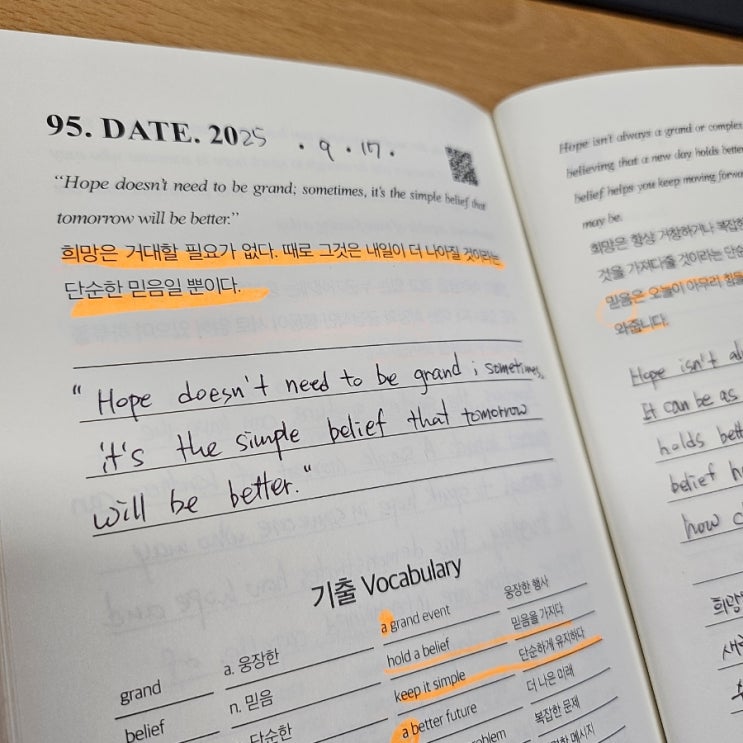 95. DATE. 2025 . 9 . 17 .
“Hope doesn't need to be grand; sometimes, it's the simple belief that
tomorrow will be better.”
희망은 거대할 필요가 없다. 때로 그것은 내일이 더 나아질 것이라는
단순한 믿음일 뿐이다.
" Hope doesn't need to be grand ; sometimes,
it's the simple belief that tomorrow
will be better. "
기출 Vocabulary
grand a. 웅장한 a grand event 웅장한 행사
belief n. 믿음 hold a belief 믿음을 가지다
단순한 keep it simple 단순하게 유지하다
a better future 더 나은 미래
복잡한 문제
메시지
Hope isn't always a grand or complex
believing that a new day holds better
belief helps you keep moving forward
may be.
희망은 항상 거창하거나 복잡한
것을 가져다줄 것이라는 단순
믿음은 오늘이 아무리 힘들
와줍니다.
Hope isn't al
It can be as
holds bett
belief he
how c
희망